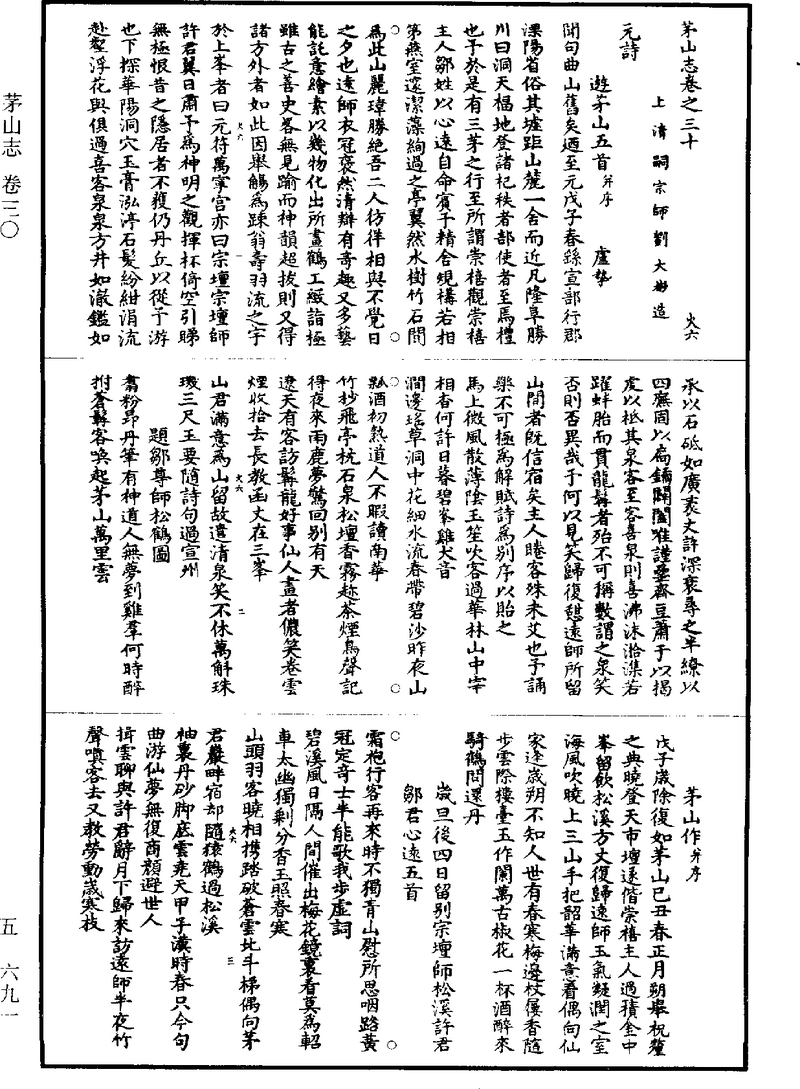 茅山志卷之三十
上清嗣宗師劉大彬造
火六
元詩
遊茅山五首并序
盧摯
聞句曲山舊矣迺至元戊子春繇宣部行郡
溧陽省俗其墟距山麓一舍而近凡隆阜勝
川曰洞天福地登諸祀秩者部使者至焉禮
也予於是有三茅之行至所謂崇禧觀崇禧
主人鄒姓以心遠自命賓予精舍規構若相
第燕室邃潔藻絢過之亭翼然水樹竹石間
焉此山麗瑋勝絶吾二人彷徉相與不覺日
之夕也遠師衣冠褎然清辯有奇趣又多藝
能託意繪素以幾物化出所畫鶴工緻詣極
雖古之善史畧無見踰而神韻超拔則又得
諸方外者如此因舉觴爲踈翁壽羽流之字
於上峯者曰元符萬寧宫亦曰宗壇宗壇師
許君翼日肅予爲神明之觀揮杯倚空引睇
無極恨昔之隱居者不獲仍丹丘以從予游
也下探華陽洞穴玉膏泓渟石髮紛紺涓流
赴壑浮花與俱過喜客泉泉方井如澈鑑如
承以石砥如廣袤丈許深袤尋之半繚以
四廡固以扃鐍闢闔唯謹壘齋豆蕭于以揭
虔以祗其泉客至客喜泉則喜沸沫渝渫若
躍蚌胎而貫龍鬚者殆不可稱數謂之泉笑
否則否異哉予何以見笑歸復憇遠師所留
山間者旣信宿矣主人睠客殊未艾也予誦
樂不可極爲解賦詩爲别序以貽之
馬上微風散薄陰玉笙吹客過華林山中宰
相香何許日暮碧峯雞犬音
澗邊瑶草洞中花細水流春帶碧沙昨夜山
瓢酒初熟道人不暇讀南華
竹抄飛亭枕石泉松壇香霧趂茶煙鳥聲記
得夜來雨鹿夢驚回别有天
遼天有客訪髯龍好事仙人畫者儂笑卷雲
煙收拾去長教函丈在三峯
山君滿意爲山留故遣清泉笑不休萬斛珠
璣三尺玉要隨詩句過宣州
題鄒尊師松鶴圖
翥粉昂丹筆有神道人無夢到雞羣何時醉
拊蒼髯客喚起茅山萬里雲
茅山作并序
戊子歲除復如茅山己丑春正月朔舉祝釐
之典曉登天市壇遂偕崇禧主人過積金中
峯留飲松溪方丈復歸遠師玉氣凝潤之室
海風吹曉上三山手把韶華滿意看偶向仙
家逢歲朔不知人世有春寒梅邊杖屨香隨
步雲際樓臺玉作闌萬古椒花一杯酒醉來
騎鶴問還丹
歲旦後四日留别宗壇師松溪許君
鄒君心遠五首
霜袍行客再來時不獨青山慰所思咽路黃
冠定奇士半能歌我步虚詞
碧溪風日隔人間催出梅花鏡裏看莫爲軺
車太幽獨剩分香玉照春寒
山頭羽客曉相携踏破蒼雲北斗梯偶向茅
君巖畔宿却隨猿鶴過松溪
袖裏丹砂脚底雲堯天甲子漢時春只今句
曲游仙夢無復商顔避世人
揖雲聊與許君辭月下歸來訪遠師半夜竹
聲嗔客去又教勞動歲寒枝
火六
二
火六
三
茅山志 卷三〇
五 六九一